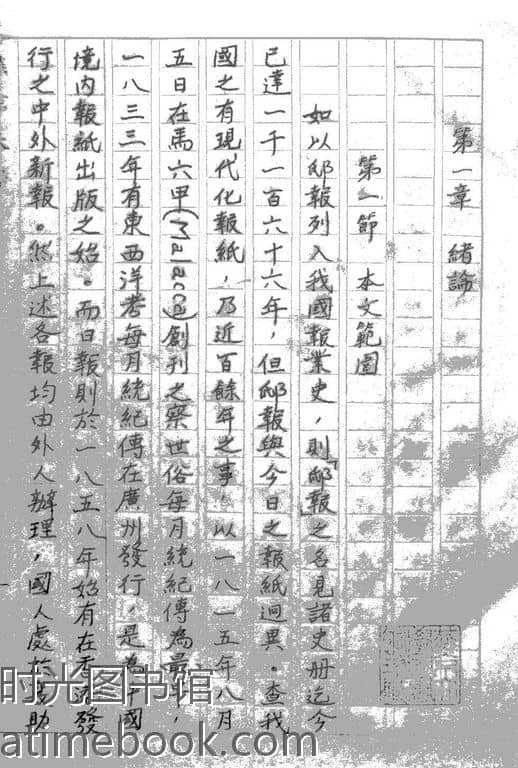 第一章 緒論
第一節 本文範圍
如以邸報列入我國報業史，則「邸報」之名見諸史册迄今
已達一千一百六十六年，但邸報與今日之報紙迥異。查我
國之有現代化報紙，乃近百餘年之事，以一八一五年八月
五日在馬六甲(Malacca)創刊之察世俗每月統紀傳為最早，
一八三三年有東西洋考每月統紀傳在廣州發行，是為中國
境內報紙出版之始。而日報則於一八五八年始有在香港發
行之中外新報。然上述各報均由外人辦理，國人處於 助
时光图书馆
atimebook.com